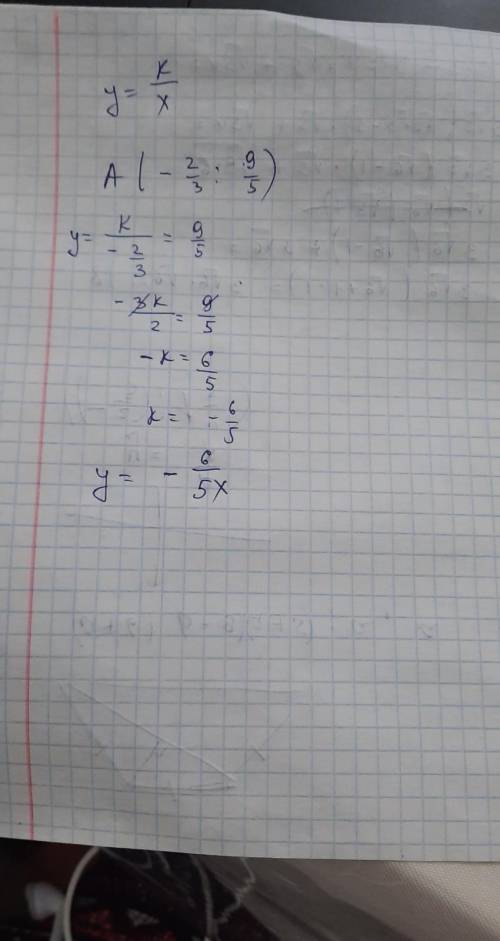 y = k/x
A (- 2/3 : 9/5)
y = k/(- 2/3) = 9/5
- 3k/2 = 9/5
- k = 6/5
k = - 6/5
y = - 6/5x